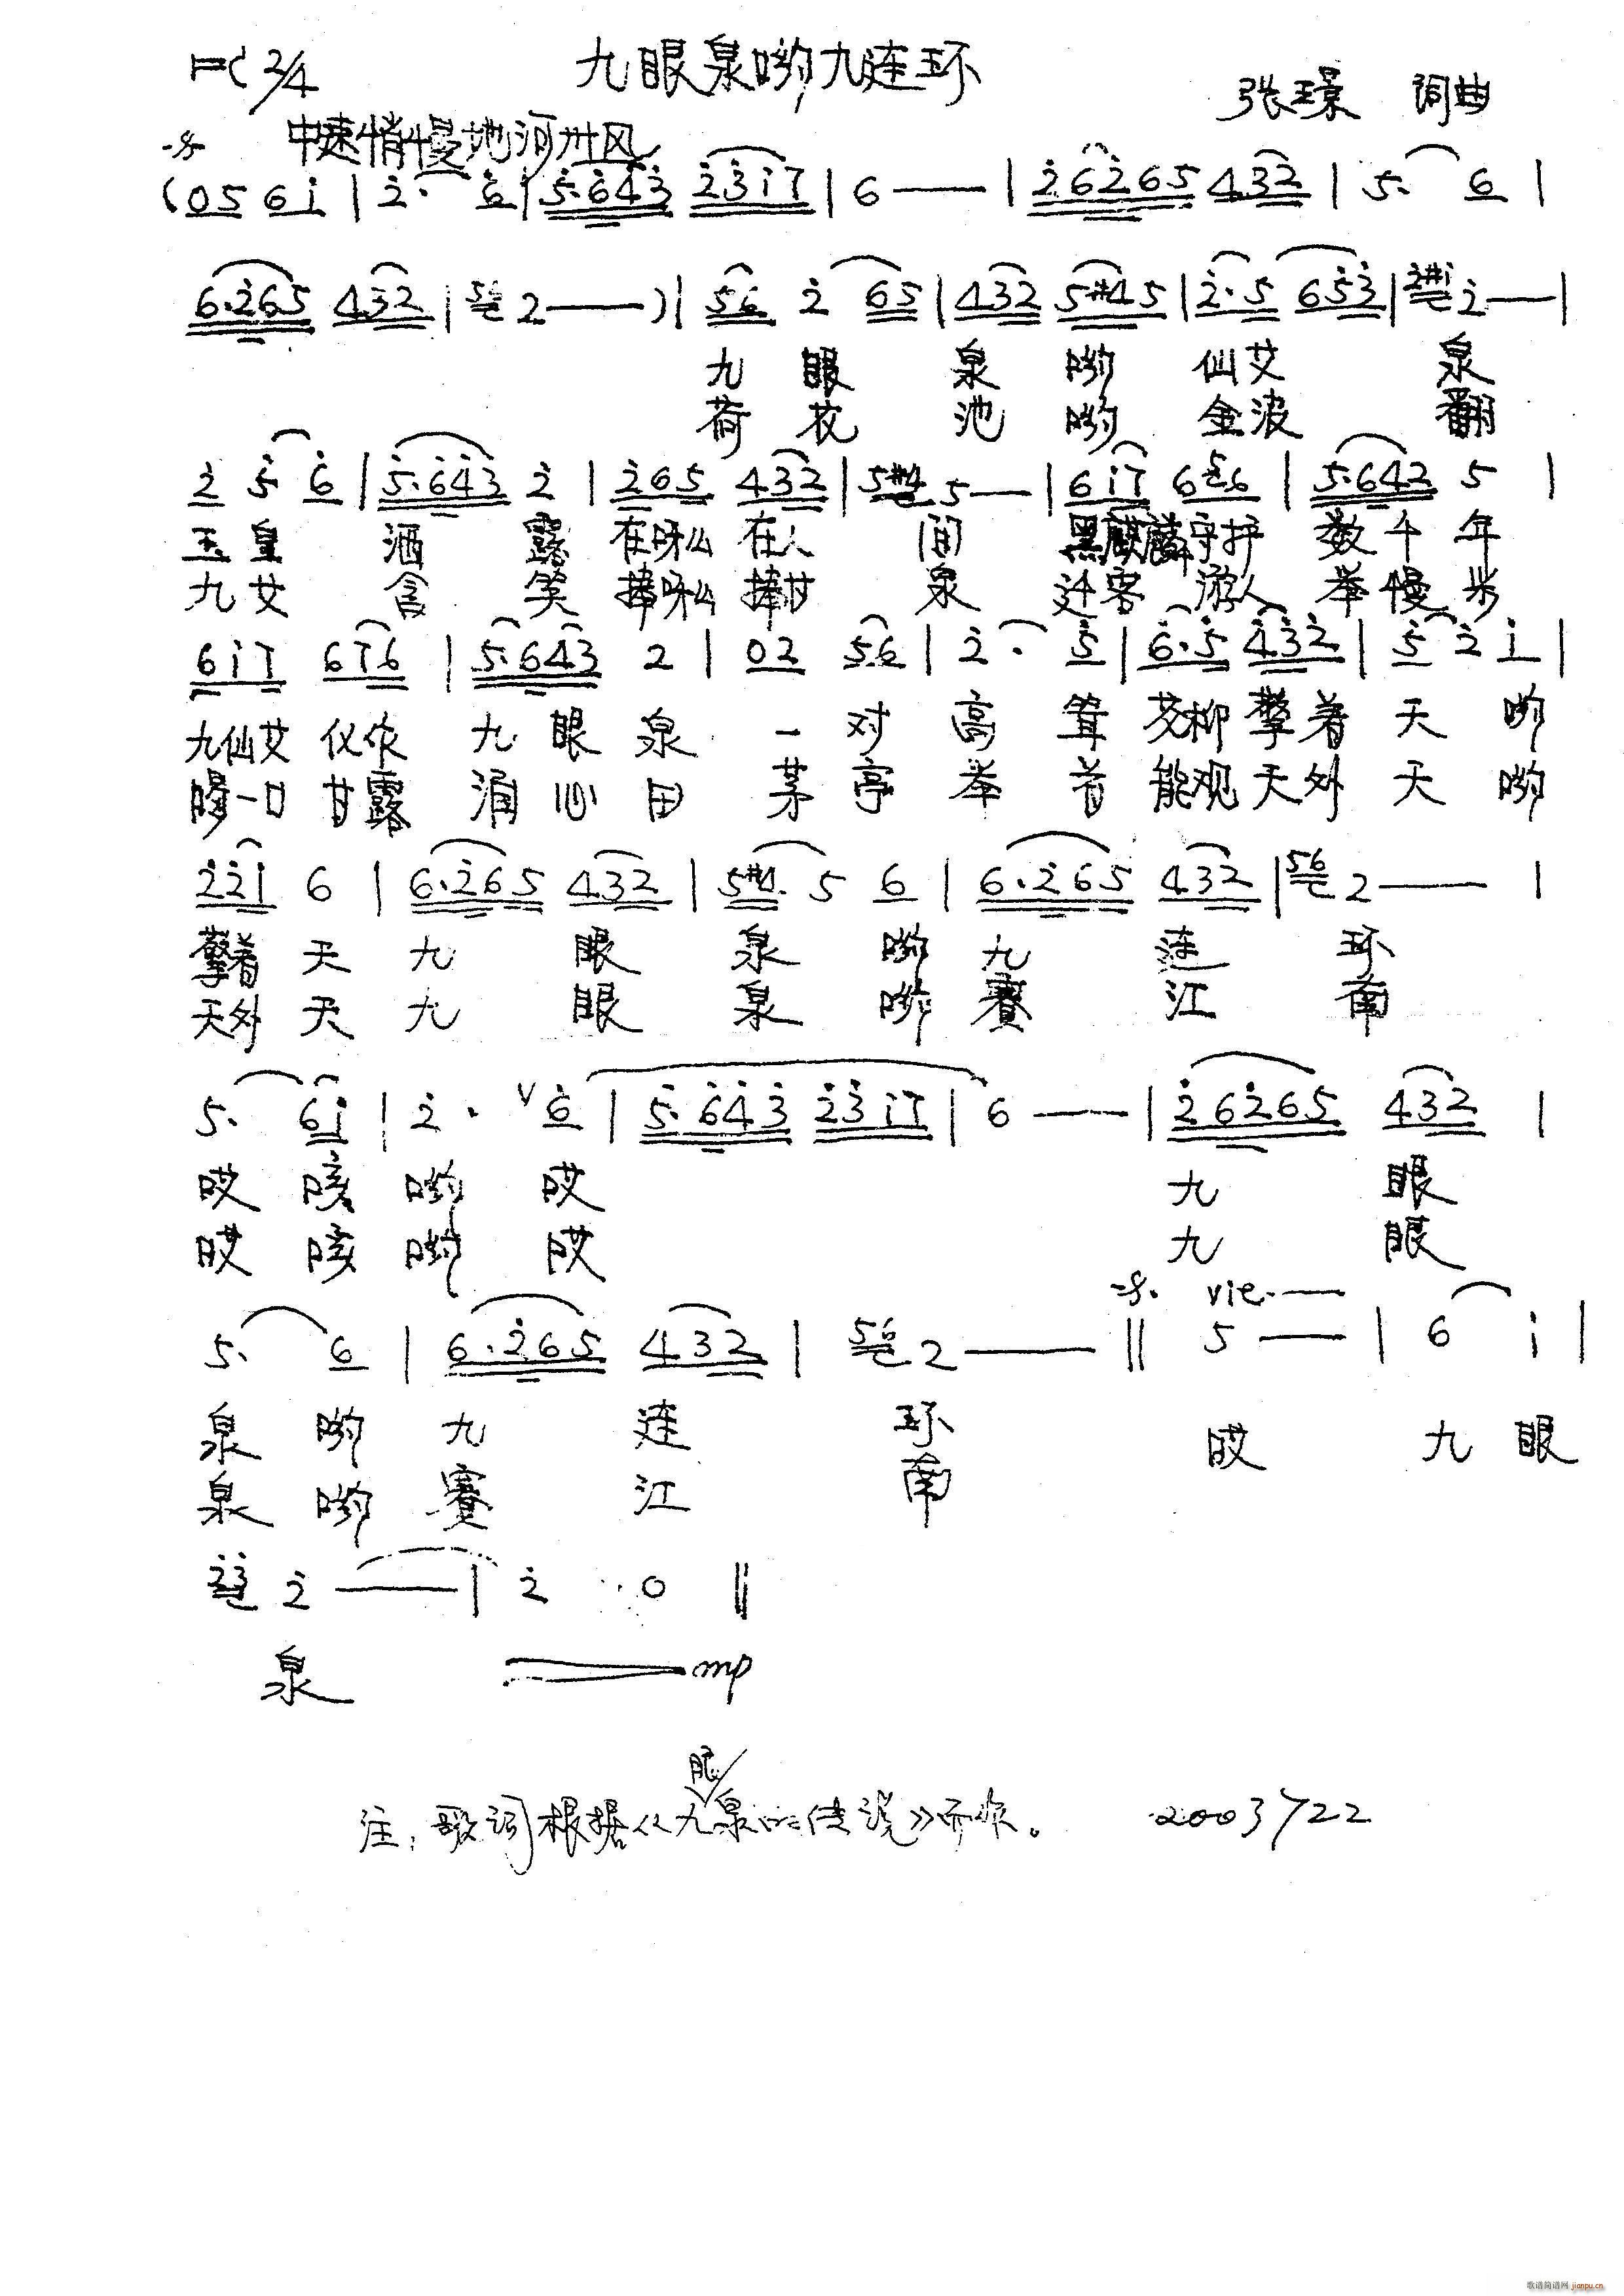 1=C 2/4 九眼泉哟九连环 张璟 词曲
中速稍慢地 河州风
(05 6i | 2· 6 | 5·643 23i7 | 6 — | 26265 432 | 5· 6 |
6·265 432 | 56 2 — )| 56 2 65 | 432 5#45 | 2·5 653 | 2#1 2 — |
九 眼 泉 哟 仙女 泉
荷 花 池 哟 金波 翻
2 5 6 | 5·643 2 | 265 432 | 5#4 5 — | 6i7 656 | 5·642 5 |
玉 皇 洒 露 在咪么 在人 间 黑麒麟守护 数 千 年
九 女 含 笑 捧咪么 捧甘 泉 迁客 游人 举 慢 步
6i7 676 | 5·643 2 | 02 56 | 2· 5 | 6·5 432 | 5 2 i |
九仙女 仪依 九 眼 泉 一 对 高 耸 擎着 天 哟
喝一口 甘露 涌 心 田 茅 亭 举 首 能观 天外 天 哟
22i 6 | 6·265 432 | 5#4· 5 6 | 6·265 432 | 56 2 — |
擎着 天 九 眼 泉 哟 九 连 环
天外 天 九 眼 泉 哟 赛 江 南
5· 6i | 2· V 6 | 5·643 23i7 | 6 — | 26265 432 |
哎 咳 哟 哎 九 眼
哎 咳 哟 哎 九 眼
vie. —
5· 6 | 6·265 432 | 56 2 — || 5 — | 6 i |
泉 哟 九 连 环 哎 九 眼
泉 哟 赛 江 南
23 2 — | 2 0 ||
泉 mp
注：歌词根据《九眼泉的传说》而作。 2003.7.22
歌谱简谱网 jianpu.cn